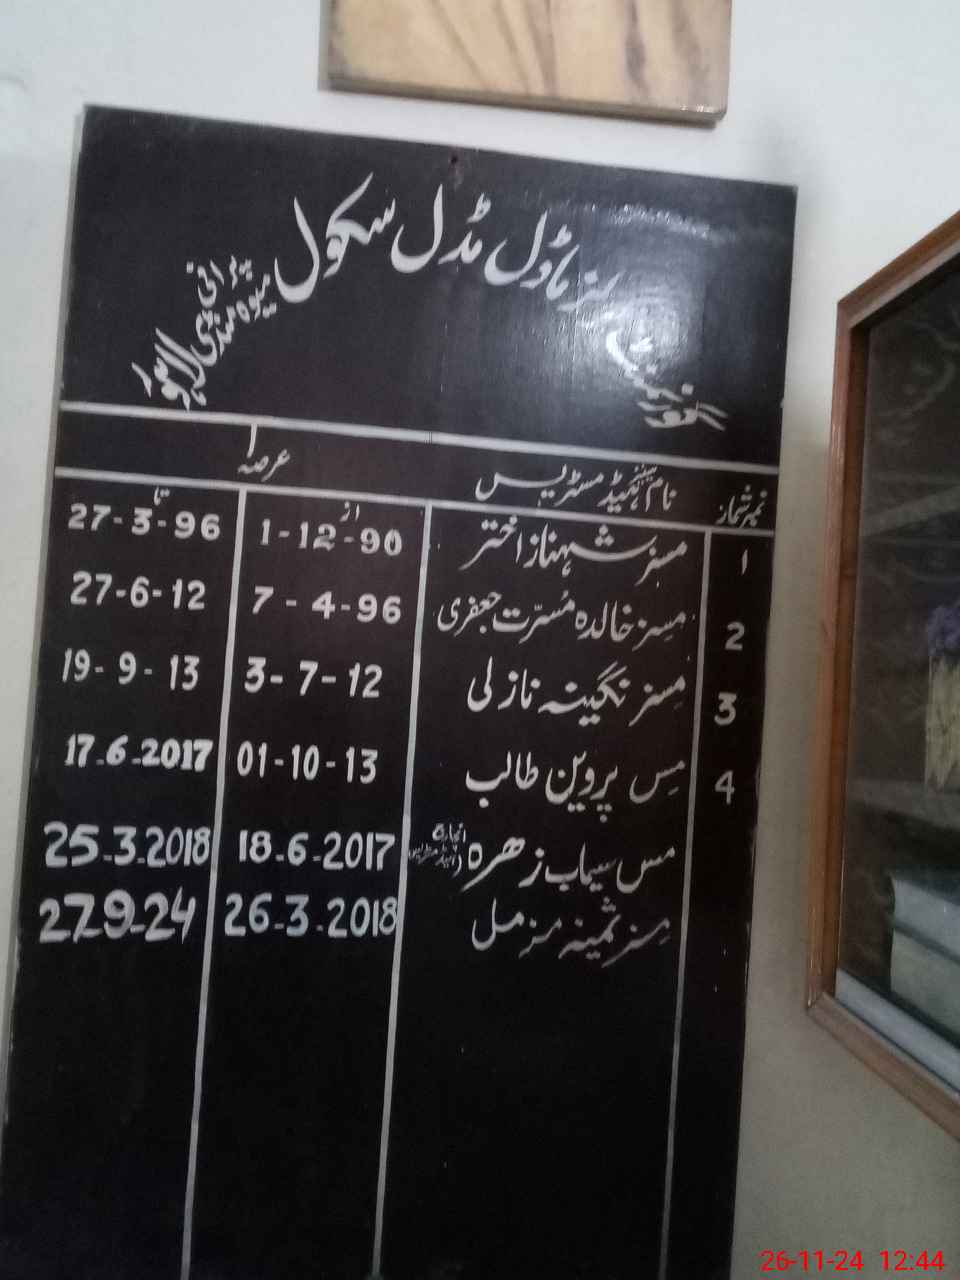 گورنمنٹ گرلز ماڈل مڈل سکول پرانی میوہ منڈی لاہور
نمبر شمار نام سینئر ہیڈ مسٹریس عرصہ
از تا
1 مسز شہناز اختر 1-12-90 27-3-96
2 مسز خالدہ مُسرّت جعفری 7-4-96 27-6-12
3 مسز نگینہ نازلی 3-7-12 19-9-13
4 مِس پروین طالب 01-10-13 17.6.2017
مس سیماب زھرہ (انچارج ہیڈ مسٹریس) 18-6-2017 25.3.2018
مسز ثمینہ مزمل 26-3-2018 27-9-24
26-11-24 12:44